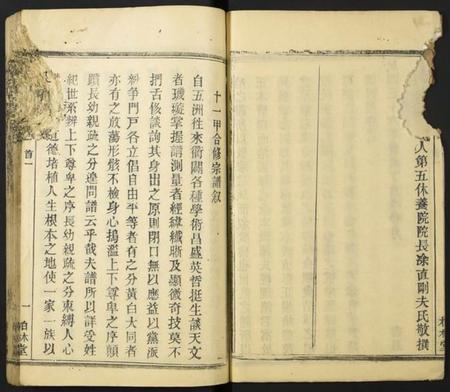 人第五休養院院長涂直剛夫敬撰
十一甲合修宗譜叙
自五洲徃來衝闢各種學術昌盛英哲挺生談天文
者璣璇掌握講測量者經緯纖晰及顯微奇技莫不
捫舌俢談詢其身出之原則閉口無以應益以黨派
紛爭門戶各立倡自由平等者有之分黃白大同者
亦有之放蕩形骸不檢身心搗濫上下尊卑之序顛
躓長幼親疏之分遑問譜云乎哉夫譜所以詳受姓
紀世系辨上下尊卑之序長幼親疏之分束縛人心
道德培植人生根本之地使一家一族以
首一
一
柏木堂